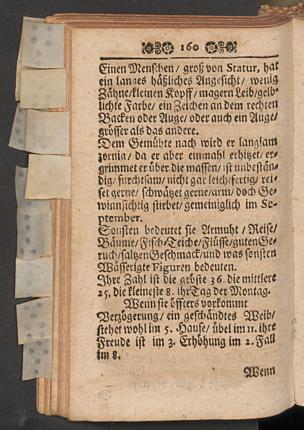 160
Einen Menschen / groß von Statur, hat
ein langes häßliches Angesicht / wenig
Zähne / kleinen Kopff / magern Leib / gelb-
lichte Farbe / ein Zeichen an dem rechten
Backen oder Auge / oder auch ein Auge
grösser als das andere.
Dem Gemühte nach wird er langsam
zornig / da er aber einmahl erhitzet / er-
grimmet er über die massen / ist unbestän-
dig / furchtsam / nicht gar leichtfertig / rei-
set gerne / schwätzet gerne / arm / doch Ge-
winnsichtig stirbet / gemeiniglich im Se-
ptember.
Sonsten bedeutet sie Armuht / Reise /
Bäume / Fisch-Teiche / Flüsse / guten Ge-
ruch / saltzen Geschmack / und was sonsten
Wässerigte Figuren bedeuten.
Ihre Zahl ist die gröste 36. die mittlere
25. die kleineste 8. ihr Tag der Montag.
Wenn sie öffters vorkommt
Verzögerung / ein geschändtes Weib /
stehet wohl im 5. Hause / übel im 11. ihre
Freude ist im 3. Erhöhung im 2. Fall
im 8.
Wenn